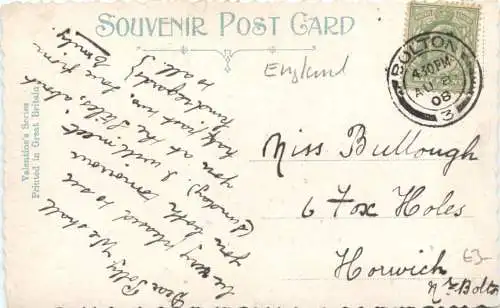 SOUVENIR POST CARD
England
BOLTON
4.30PM
AU 8
08
3
Valentine's Series
Printed in Great Britain
Dear Polly, We shall
be very pleased to see
you both tomorrow
(Sunday). I will meet
you at the Stiles, about
half past two, love from
Kind regards
to all.
Emily
Miss Bullough
6 Fox Holes
Horwich
Nr Bolton
£3-